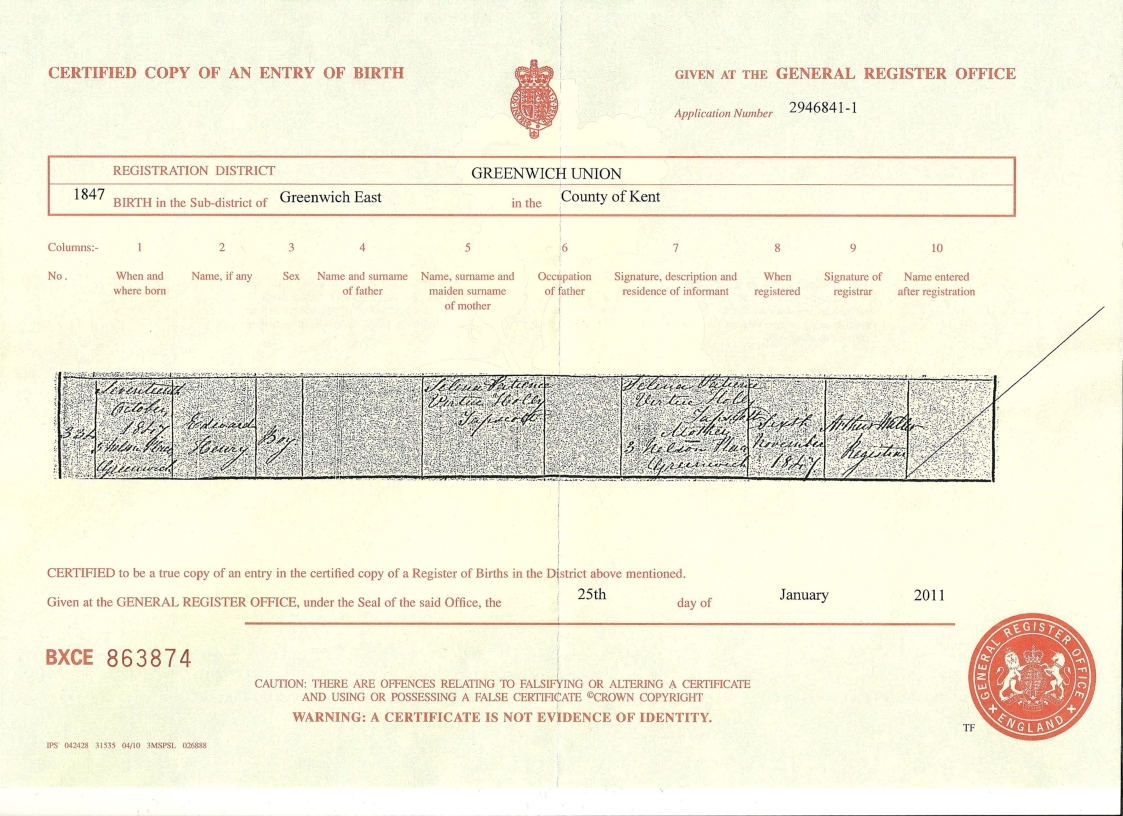 CERTIFIED COPY OF AN ENTRY OF BIRTH
GIVEN AT THE GENERAL REGISTER OFFICE
Application Number 2946841-1
REGISTRATION DISTRICT GREENWICH UNION
1847 BIRTH in the Sub-district of Greenwich East in the County of Kent
Columns:- 1 2 3 4 5 6 7 8 9 10
No. When and where born
Name, if any
Sex
Name and surname of father
Name, surname and maiden surname of mother
Occupation of father
Signature, description and residence of informant
When registered
Signature of registrar
Name entered after registration
Seventeenth
October
1847
Nelson Place
Greenwich
Edward
Henry
Boy
Selena Patience
Virtue Holly
Tapscott
Selena Patience
Virtue Holly
Tapscott
Mother
3 Nelson Place
Greenwich
Sixth
November
1847
Arthur
Registrar
CERTIFIED to be a true copy of an entry in the certified copy of a Register of Births in the District above mentioned.
Given at the GENERAL REGISTER OFFICE, under the Seal of the said Office, the 25th day of January 2011
BXCE 863874
CAUTION: THERE ARE OFFENCES RELATING TO FALSIFYING OR ALTERING A CERTIFICATE
AND USING OR POSSESSING A FALSE CERTIFICATE ©CROWN COPYRIGHT
WARNING: A CERTIFICATE IS NOT EVIDENCE OF IDENTITY.
GENERAL REGISTER OFFICE
ENGLAND
TF
IPS 042428 31535 04/10 3MSPSL 026888